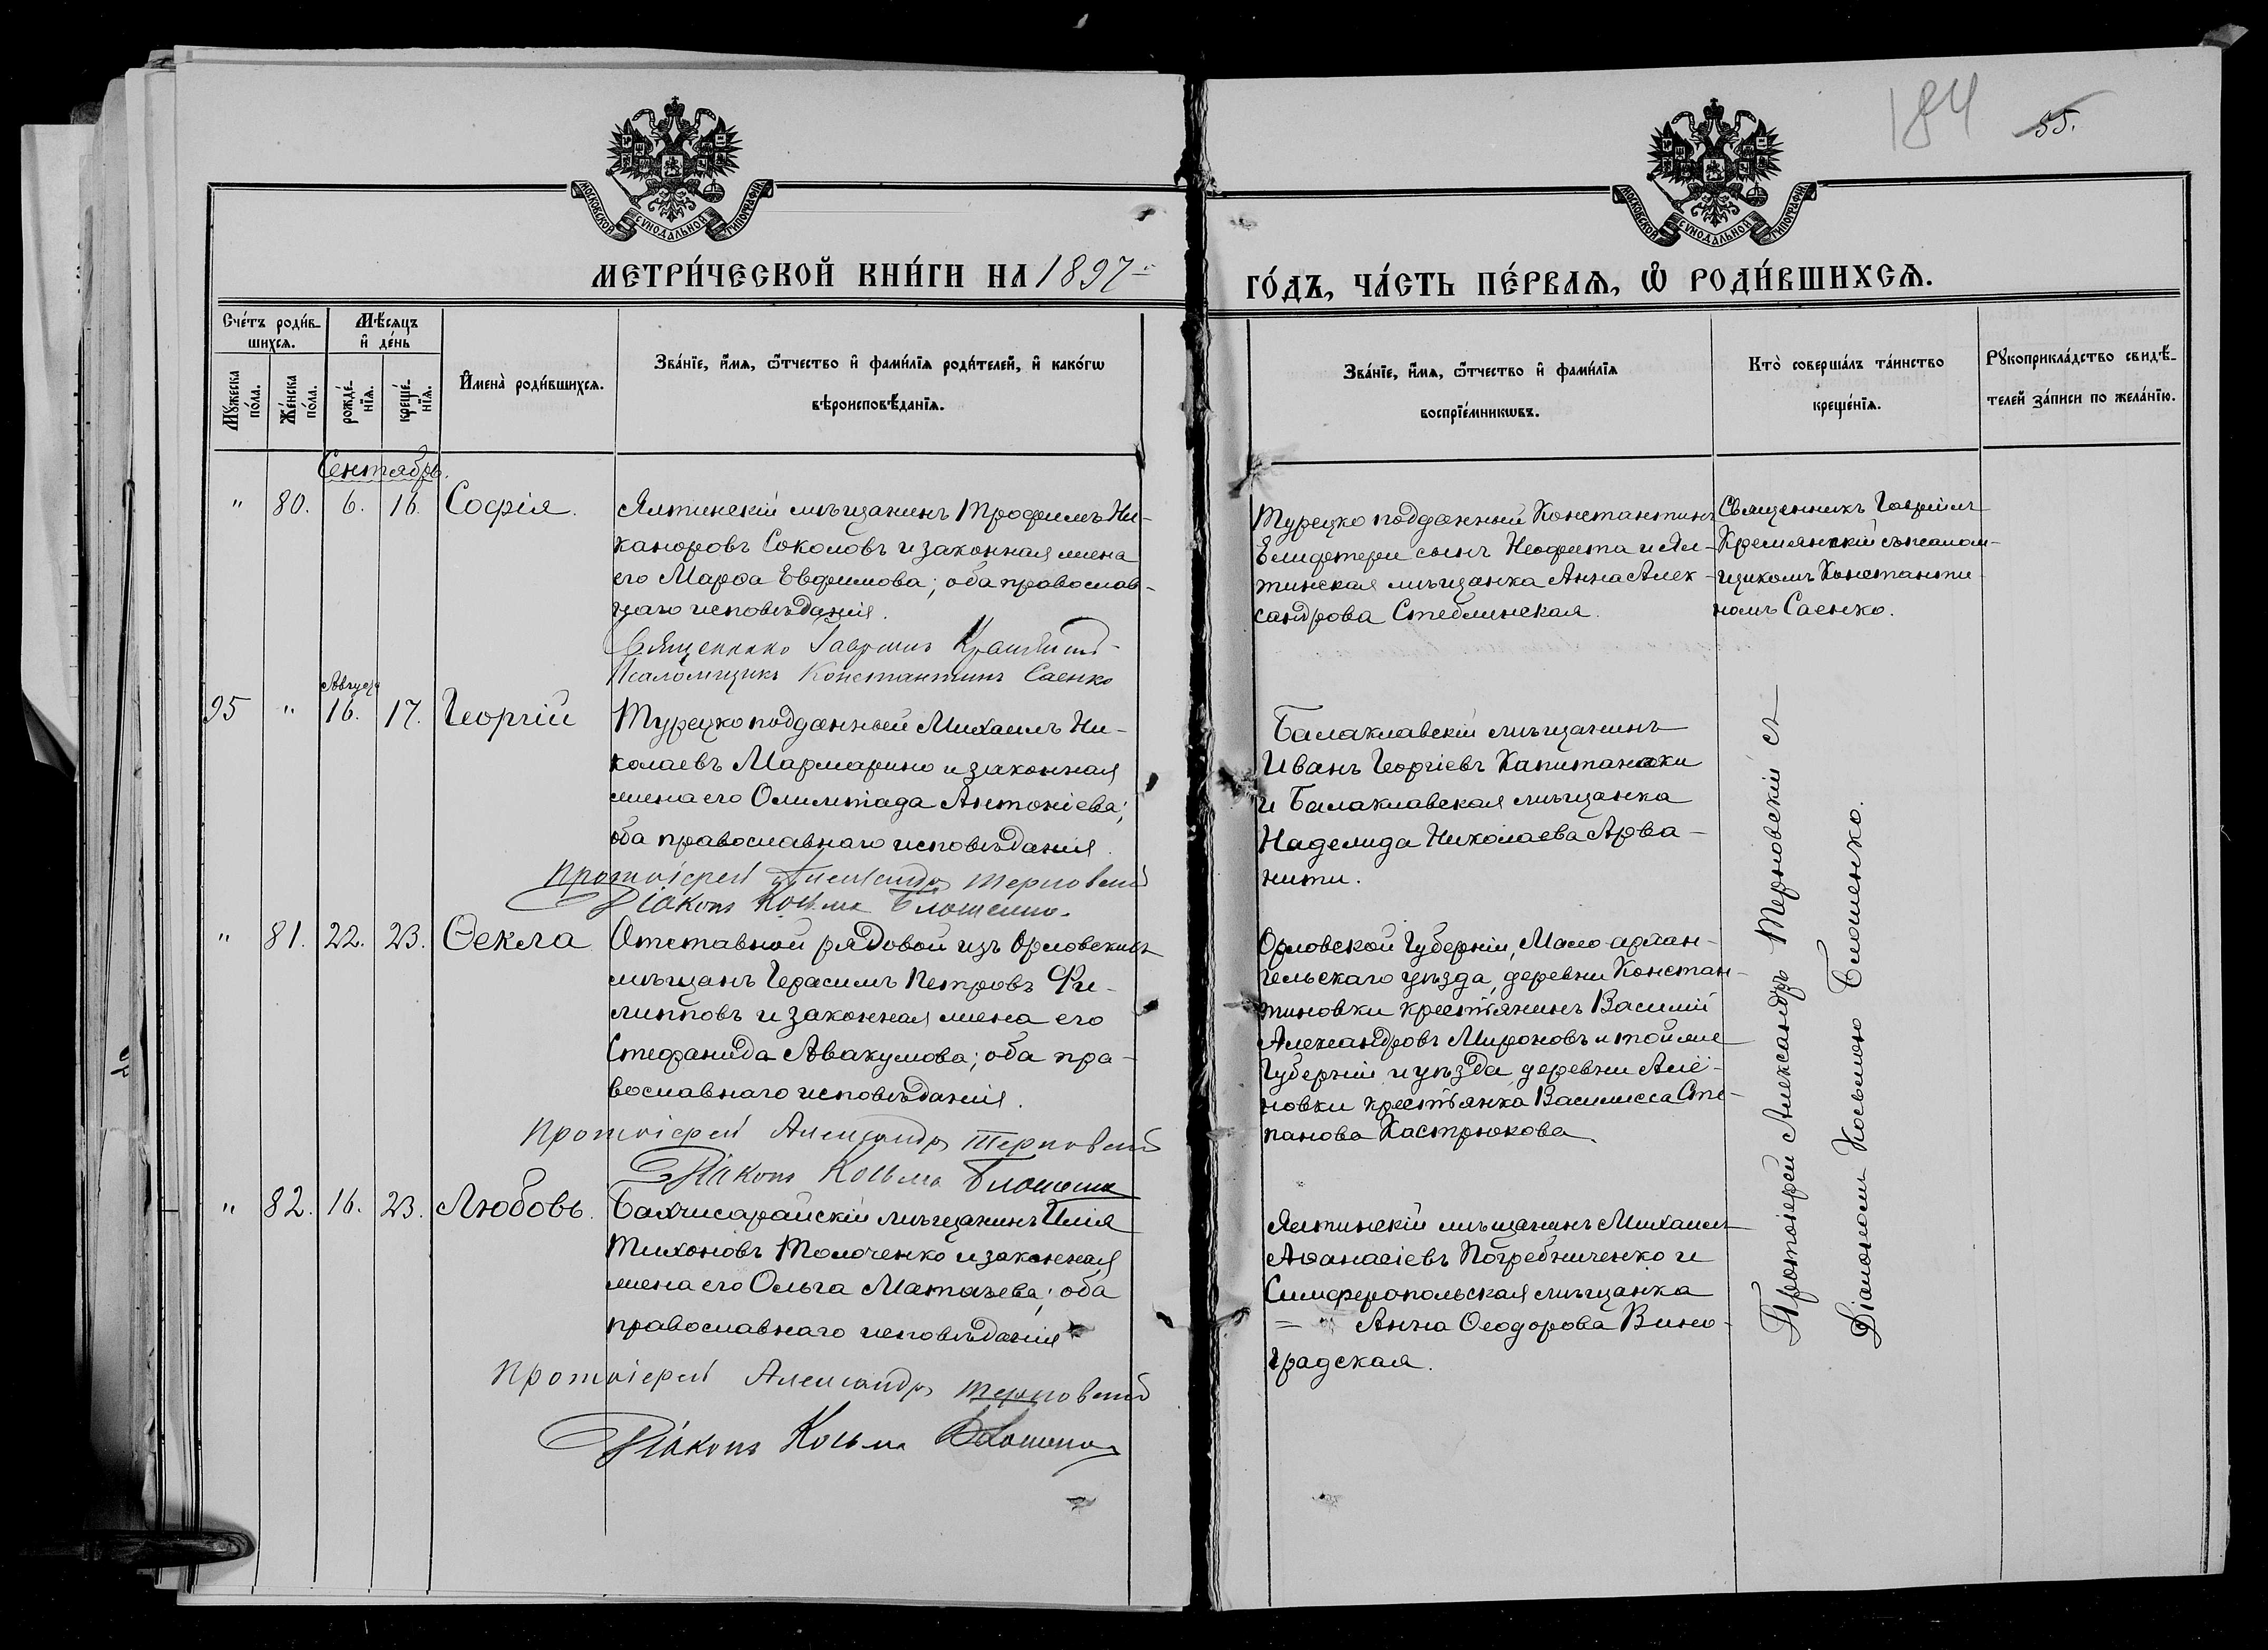 184 55.
МОСКОВСКОЙ СѴНОДАЛЬНОЙ ТИПОГРАФІИ
МОСКОВСКОЙ СѴНОДАЛЬНОЙ ТИПОГРАФІИ
МЕТРИ́ЧЕСКОЙ КНИ́ГИ НА 1897
ГО́ДЪ, ЧА́СТЬ ПЕ́РВАѦ, Ѽ РОДИ́ВШИХСѦ.
Сче́тъ роди́в-
шихсѧ.
Мꙋ́жеска по́ла.
Же́нска по́ла.
Мѣ́сѧцъ
и҆ де́нь
рожде́-
нїѧ.
креще́-
нїѧ.
И҆мена̀ роди́вшихсѧ.
Зва́нїе, и҆́мѧ, ѻ҆́тчество и҆ фами́лїѧ роди́телей, и҆ како́гѡ
вѣроисповѣ́данїѧ.
Зва́нїе, и҆́мѧ, ѻ҆́тчество и҆ фами́лїѧ
воспрїе́мникѡвъ.
Кто̀ соверша́лъ та́инство
креще́нїѧ.
Рꙋкоприкла́дство свидѣ́-
телей за́писи по жела́нїю.
Сентябрь.
" 80. 6. 16. Софія.
Ялтинскій мѣщанинъ Трофимъ Ни-
каноровъ Соколовъ и законная жена
его Марѳа Евфимова; оба православ-
наго исповѣданія.
Священникъ Гавріилъ
Псаломщикъ Константинъ Саенко
Турецко подданный Константинъ
Елифтери сынъ Неофита и Ял-
тинская мѣщанка Анна Алек-
сандрова Стеблинская.
Священникъ Гавріилъ
съ псалом-
щикомъ Константи-
номъ Саенко.
95 " Августа 16. 17. Георгій
Турецко подданный Михаилъ Ни-
колаевъ Мармарино и законная
жена его Олимпіада Антоніева;
оба православнаго исповѣданія.
Протоіерей Александръ Терновскій
Діаконъ Косьма Блошенко
Балаклавскій мѣщанинъ
Иванъ Георгіевъ Капитанаки
и Балаклавская мѣщанка
Наделида Николаева Арва-
нити.
" 81. 22. 23. Ѳекла
Отставной рядовой изъ Орловскихъ
мѣщанъ Герасимъ Петровъ Фи-
липповъ и законная жена его
Стефанида Авакумова; оба пра-
вославнаго исповѣданія.
Протоіерей Александръ Терновскій
Діаконъ Косьма Блошенко
Орловской Губерніи, Мало-архан-
гельскаго уѣзда, деревни Констан-
тиновки крестьянинъ Василій
Александровъ Мироновъ и той же
Губерніи и уѣзда деревни Алё-
новки крестьянка Василисса Сте-
панова Кастрюкова.
" 82. 16. 23. Любовь.
Бахчисарайскій мѣщанинъ Илія
Тихоновъ Толоченко и законная
жена его Ольга Матвѣева; оба
православнаго исповѣданія
Протоіерей Александръ Терновскій
Діаконъ Косьма Блошенко
Ялтинскій мѣщанинъ Михаилъ
Аѳанасіевъ Погребниченко и
Симферопольская мѣщанка
Анна Ѳеодорова Вино-
градская.
Протоіерей Александръ Терновскій съ
Діакономъ Косьмою Блошенко.